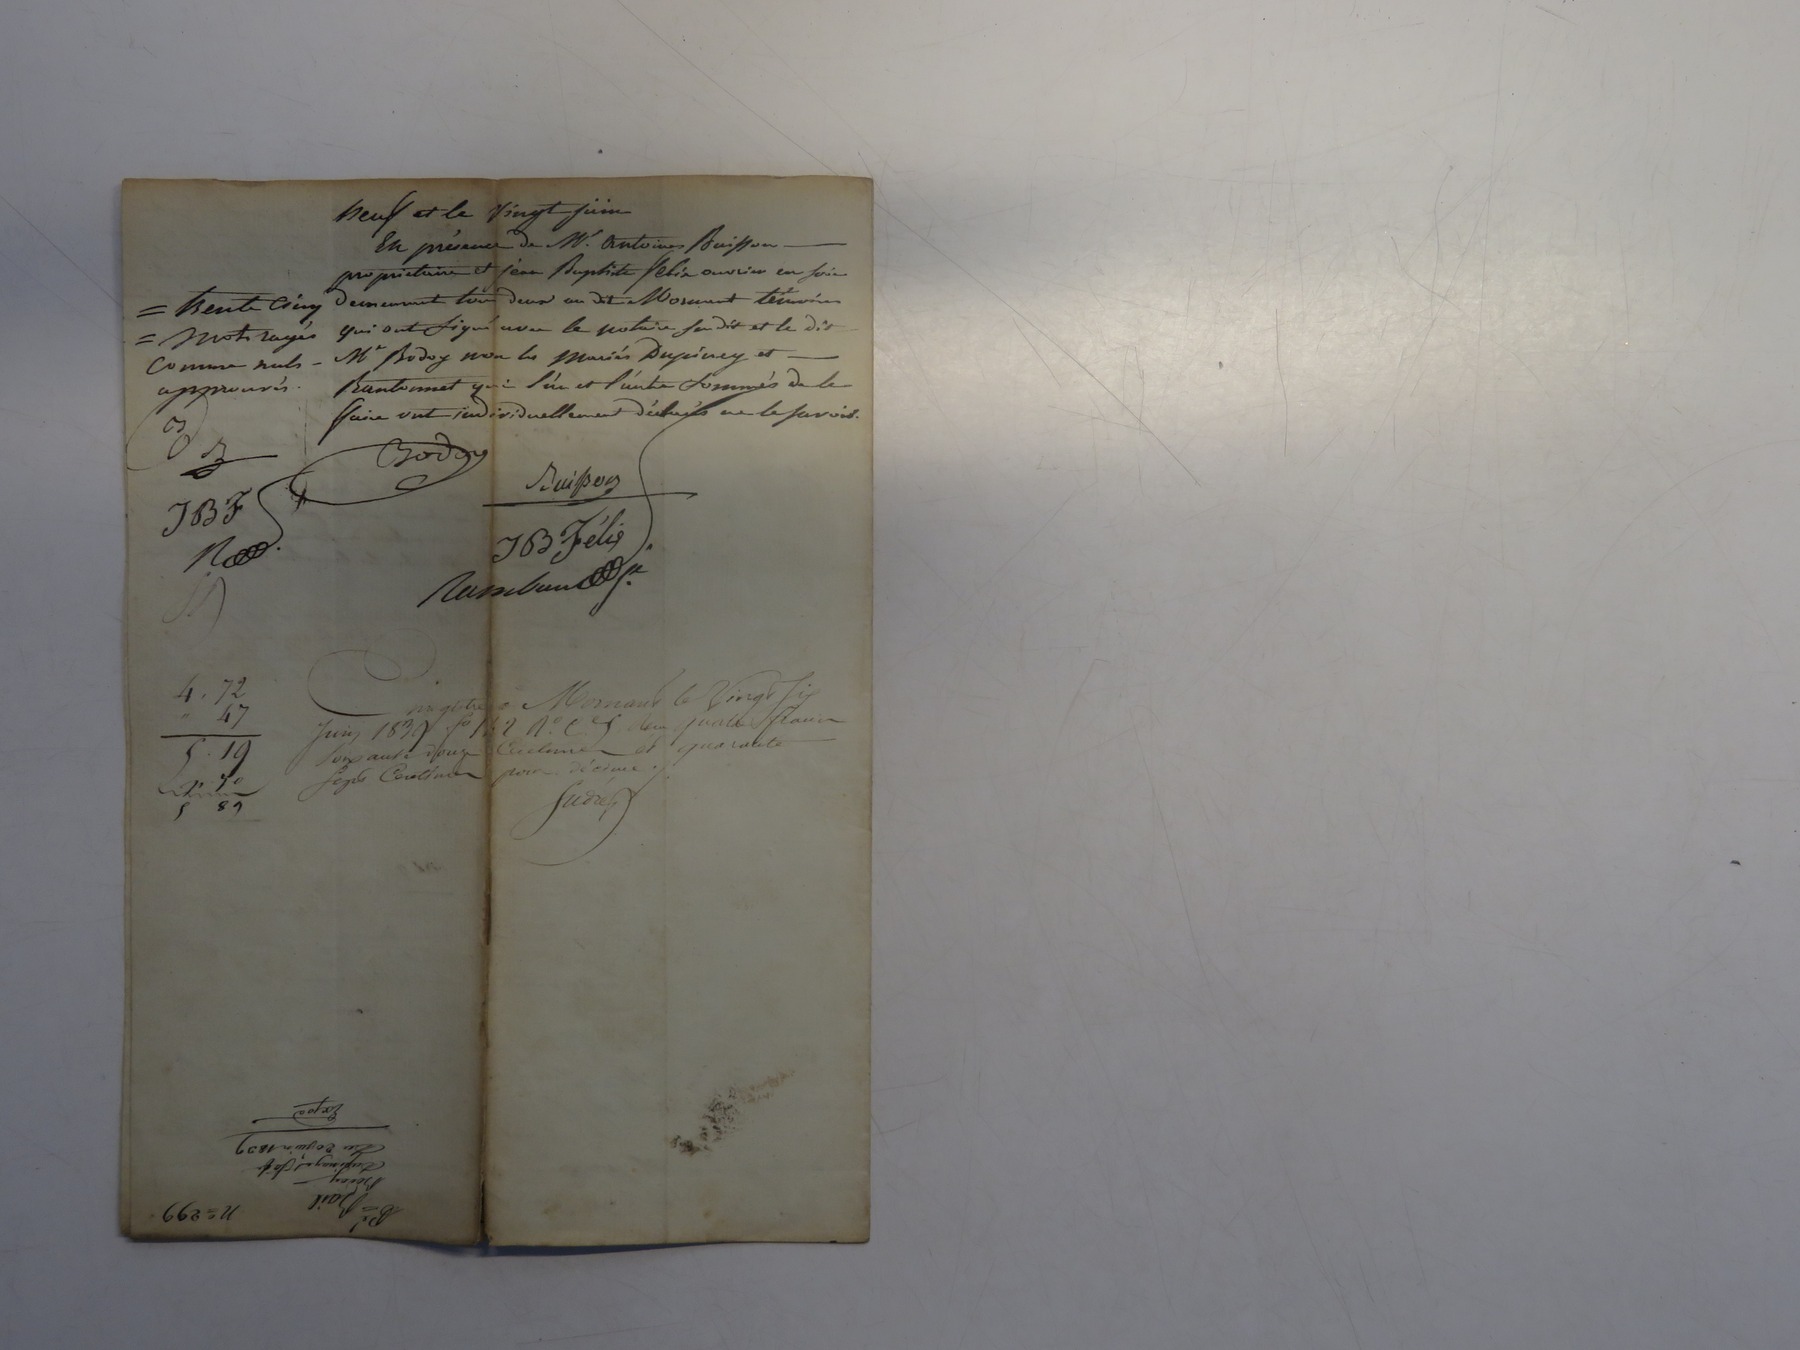 neuf et le vingt juin
En présence de Mr. Antoine Buisson
propriétaire et jean Baptiste felix ouvrier en soie
demeurant tous deux au dit Mornant témoins
qui ont signé avec le notaire susdit et le dit
Mr Bodoy non les mariés Dupinay et
qui l'un et l'autre sommés de le
faire ont individuellement déclarés ne le savoir.
= trente cinq
= mots rayés
comme nuls
approuvés.
B
JBF
R
Bodoy
Buisson
JB Félix
4. 72
" 47
5. 19
". 70
5 89
Enregistré à Mornant le vingt six
Juin 1839 fo 142 Ro. C. 5 reçu quatre francs
soixante douze centimes et quarante
sept centimes pour décime.
Expe
du 20 juin 1839
Bail
no 299